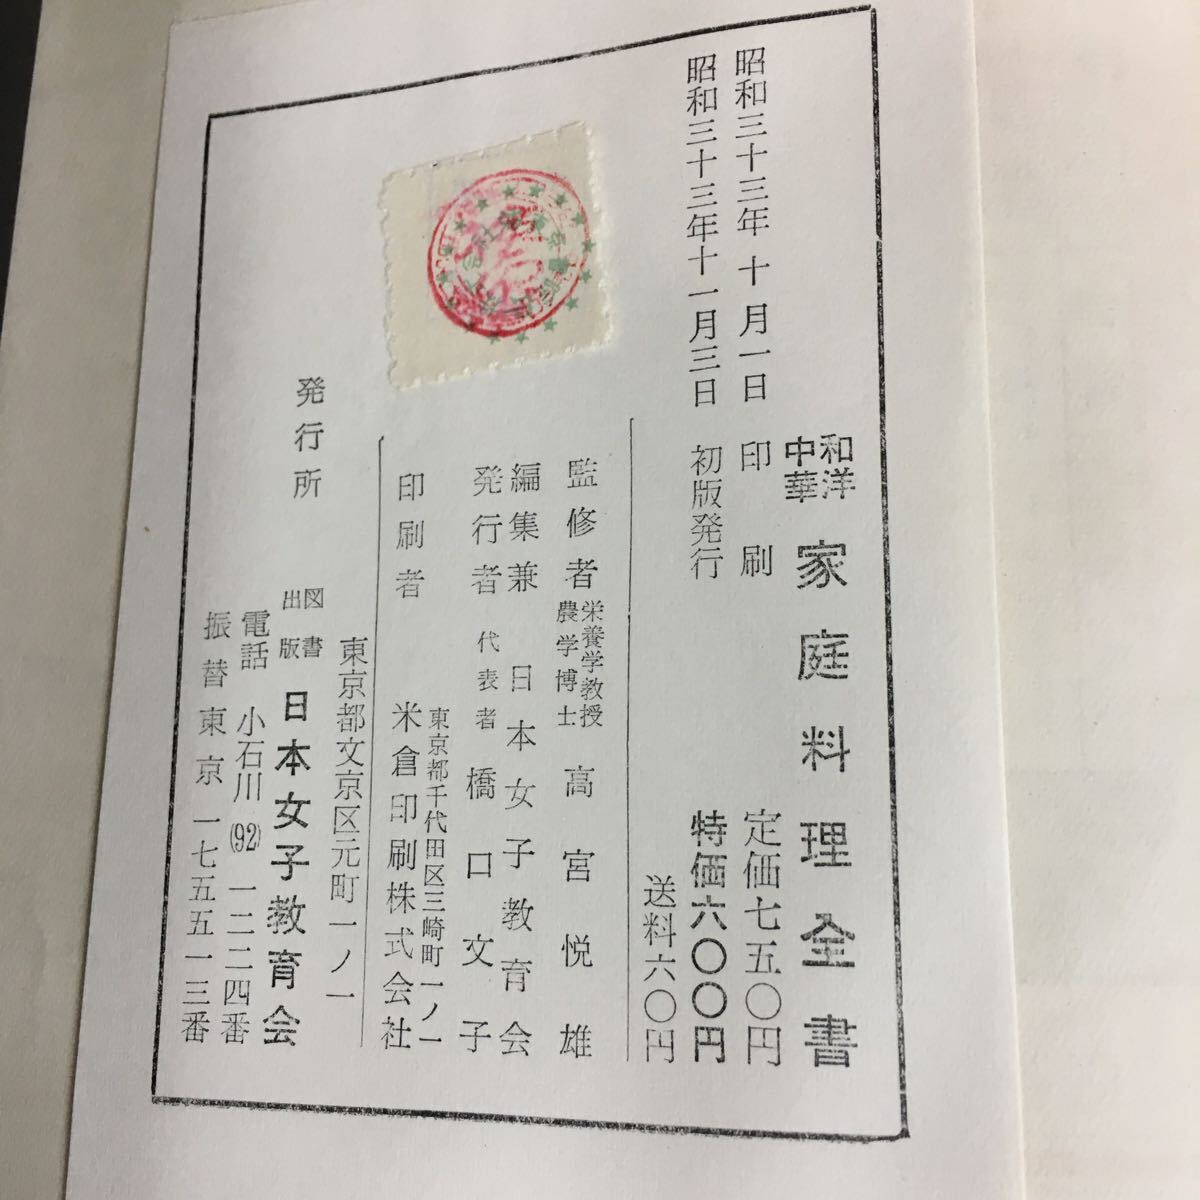 和洋
中華
家庭料理全書
昭和三十三年 十月一日 印刷
昭和三十三年十一月三日 初版発行
定価七五〇円
特価六〇〇円
送料六〇円
監修者 栄養学教授
農学博士 高宮悦雄
編集兼 日本女子教育会
発行者 代表者 橋口文子
東京都千代田区三崎町一ノ一
印刷者 米倉印刷株式会社
東京都文京区元町一ノ一
発行所 図書
出版 日本女子教育会
電話 小石川(92)一二二四番
振替東京一七五五一三番